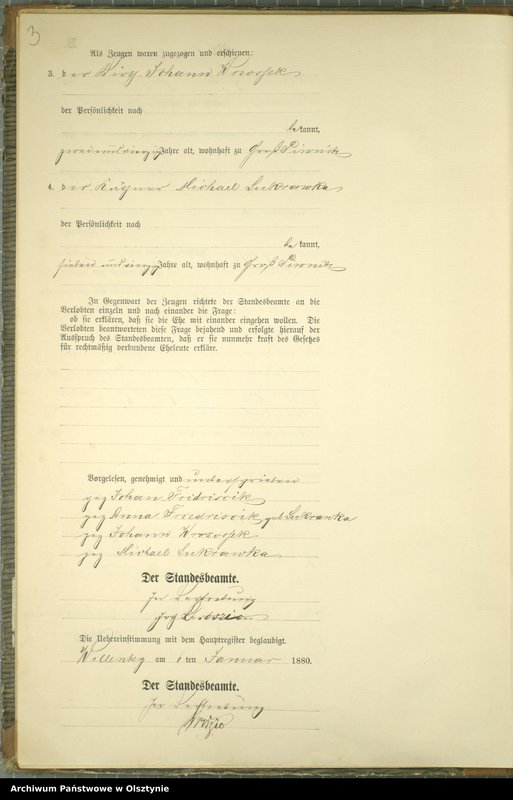 3
Als Zeugen waren zugezogen und erschienen:
3. der Wirth Johann
der Persönlichkeit nach
bekannt,
zweiundvierzig Jahre alt, wohnhaft zu Groß Piwnitz
4. der Käthner Michael Sukrawka
der Persönlichkeit nach
bekannt,
sieben und vierzig Jahre alt, wohnhaft zu Groß Piwnitz
In Gegenwart der Zeugen richtete der Standesbeamte an die
Verlobten einzeln und nach einander die Frage:
ob sie erklären, daß sie die Ehe mit einander eingehen wollen. Die
Verlobten beantworteten diese Frage bejahend und erfolgte hierauf der
Ausspruch des Standesbeamten, daß er sie nunmehr kraft des Gesetzes
für rechtmäßig verbundene Eheleute erkläre.
Vorgelesen, genehmigt und unterschrieben
gez Johan
gez Anna geb Sukranka
gez Johann
gez Michael Sukrawka
Der Standesbeamte.
In Vertretung
gez
Die Uebereinstimmung mit dem Hauptregister beglaubigt.
Willenberg am ten Januar 1880.
Der Standesbeamte.
In Vertretung
Archiwum Państwowe w Olsztynie